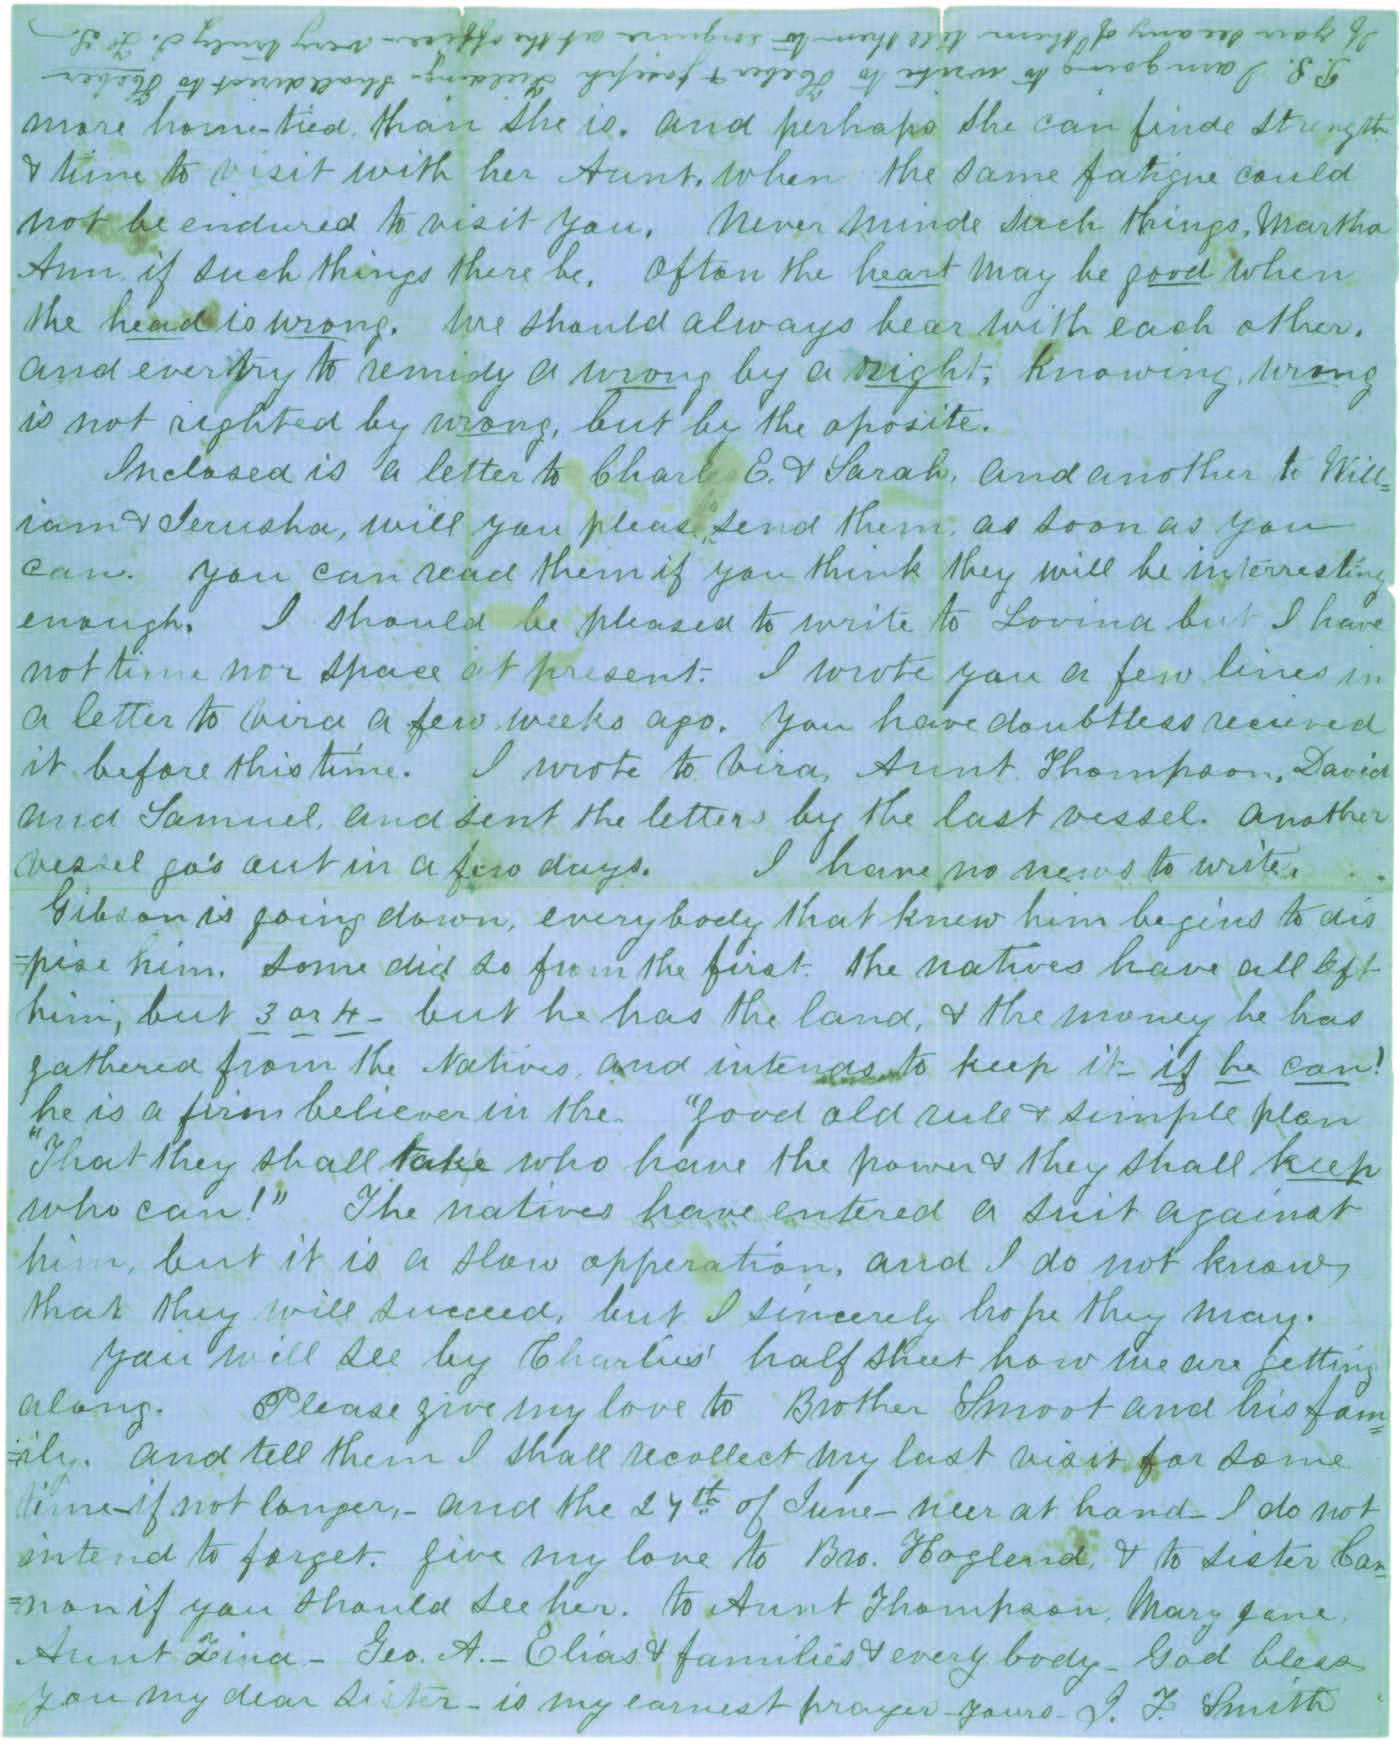 more home-tied, than she is. and perhaps she can finde strength
& time to visit with her Aunt, when the same fatigue could
not be endured to visit you. Never minde such things, Martha
Ann if such things there be. Often the heart may be good when
the head is wrong. We should always bear with each other.
and ever try to remidy a wrong by a right, knowing, wrong
is not righted by wrong, but by the oposite.
Inclosed is a letter to Charles E. & Sarah, and another to Will=
iam & Jerusha, will you pleas, to send them, as soon as you
can. you can read them if you think they will be interresting
enough. I should be pleased to write to Lovina but I have
not time nor space at present. I wrote you a few lines in
a letter to Vira a few weeks ago. You have doubtless recieved
it before this time. I wrote to Vira, Aunt Thompson, David
and Samuel, and sent the letters by the last vessel. another
vessel go's out in a few days. I have no news to write.
Gibson is going down, everybody that knew him begins to dis
=pise him. Some did so from the first. the natives have all left
him, but 3 or 4 - but he has the land, & the money he has
gathered from the Natives, and intends to keep it - if he can!
he is a firm believer in the "good old rule & simple plan
"That they shall take who have the power & they shall keep
who can!" The natives have entered a suit against
him, but it is a slow opperation, and I do not know,
that they will succeed, but I sincerely hope they may.
You will see by Charlies' half sheet how we are getting
along. Please give my love to Brother Smoot and his fam=
=ily. and tell them I shall recollect my last visit for some
time - if not longer, - and the 27th of June - neer at hand - I do not
intend to forget. give my love to Bro. Hoglend, & to sister Can=
=non if you should see her. to Aunt Thompson, Mary Jane,
Aunt Zina - Geo. A. - Elias & families & every body - God bless
you my dear sister - is my earnest prayer - yours - J. F. Smith
P.S. I am going to write to Heber & Joseph Fielding - shall direct to Heber
If you see any of them tell them to enquire at the office - very truly J. F. S.